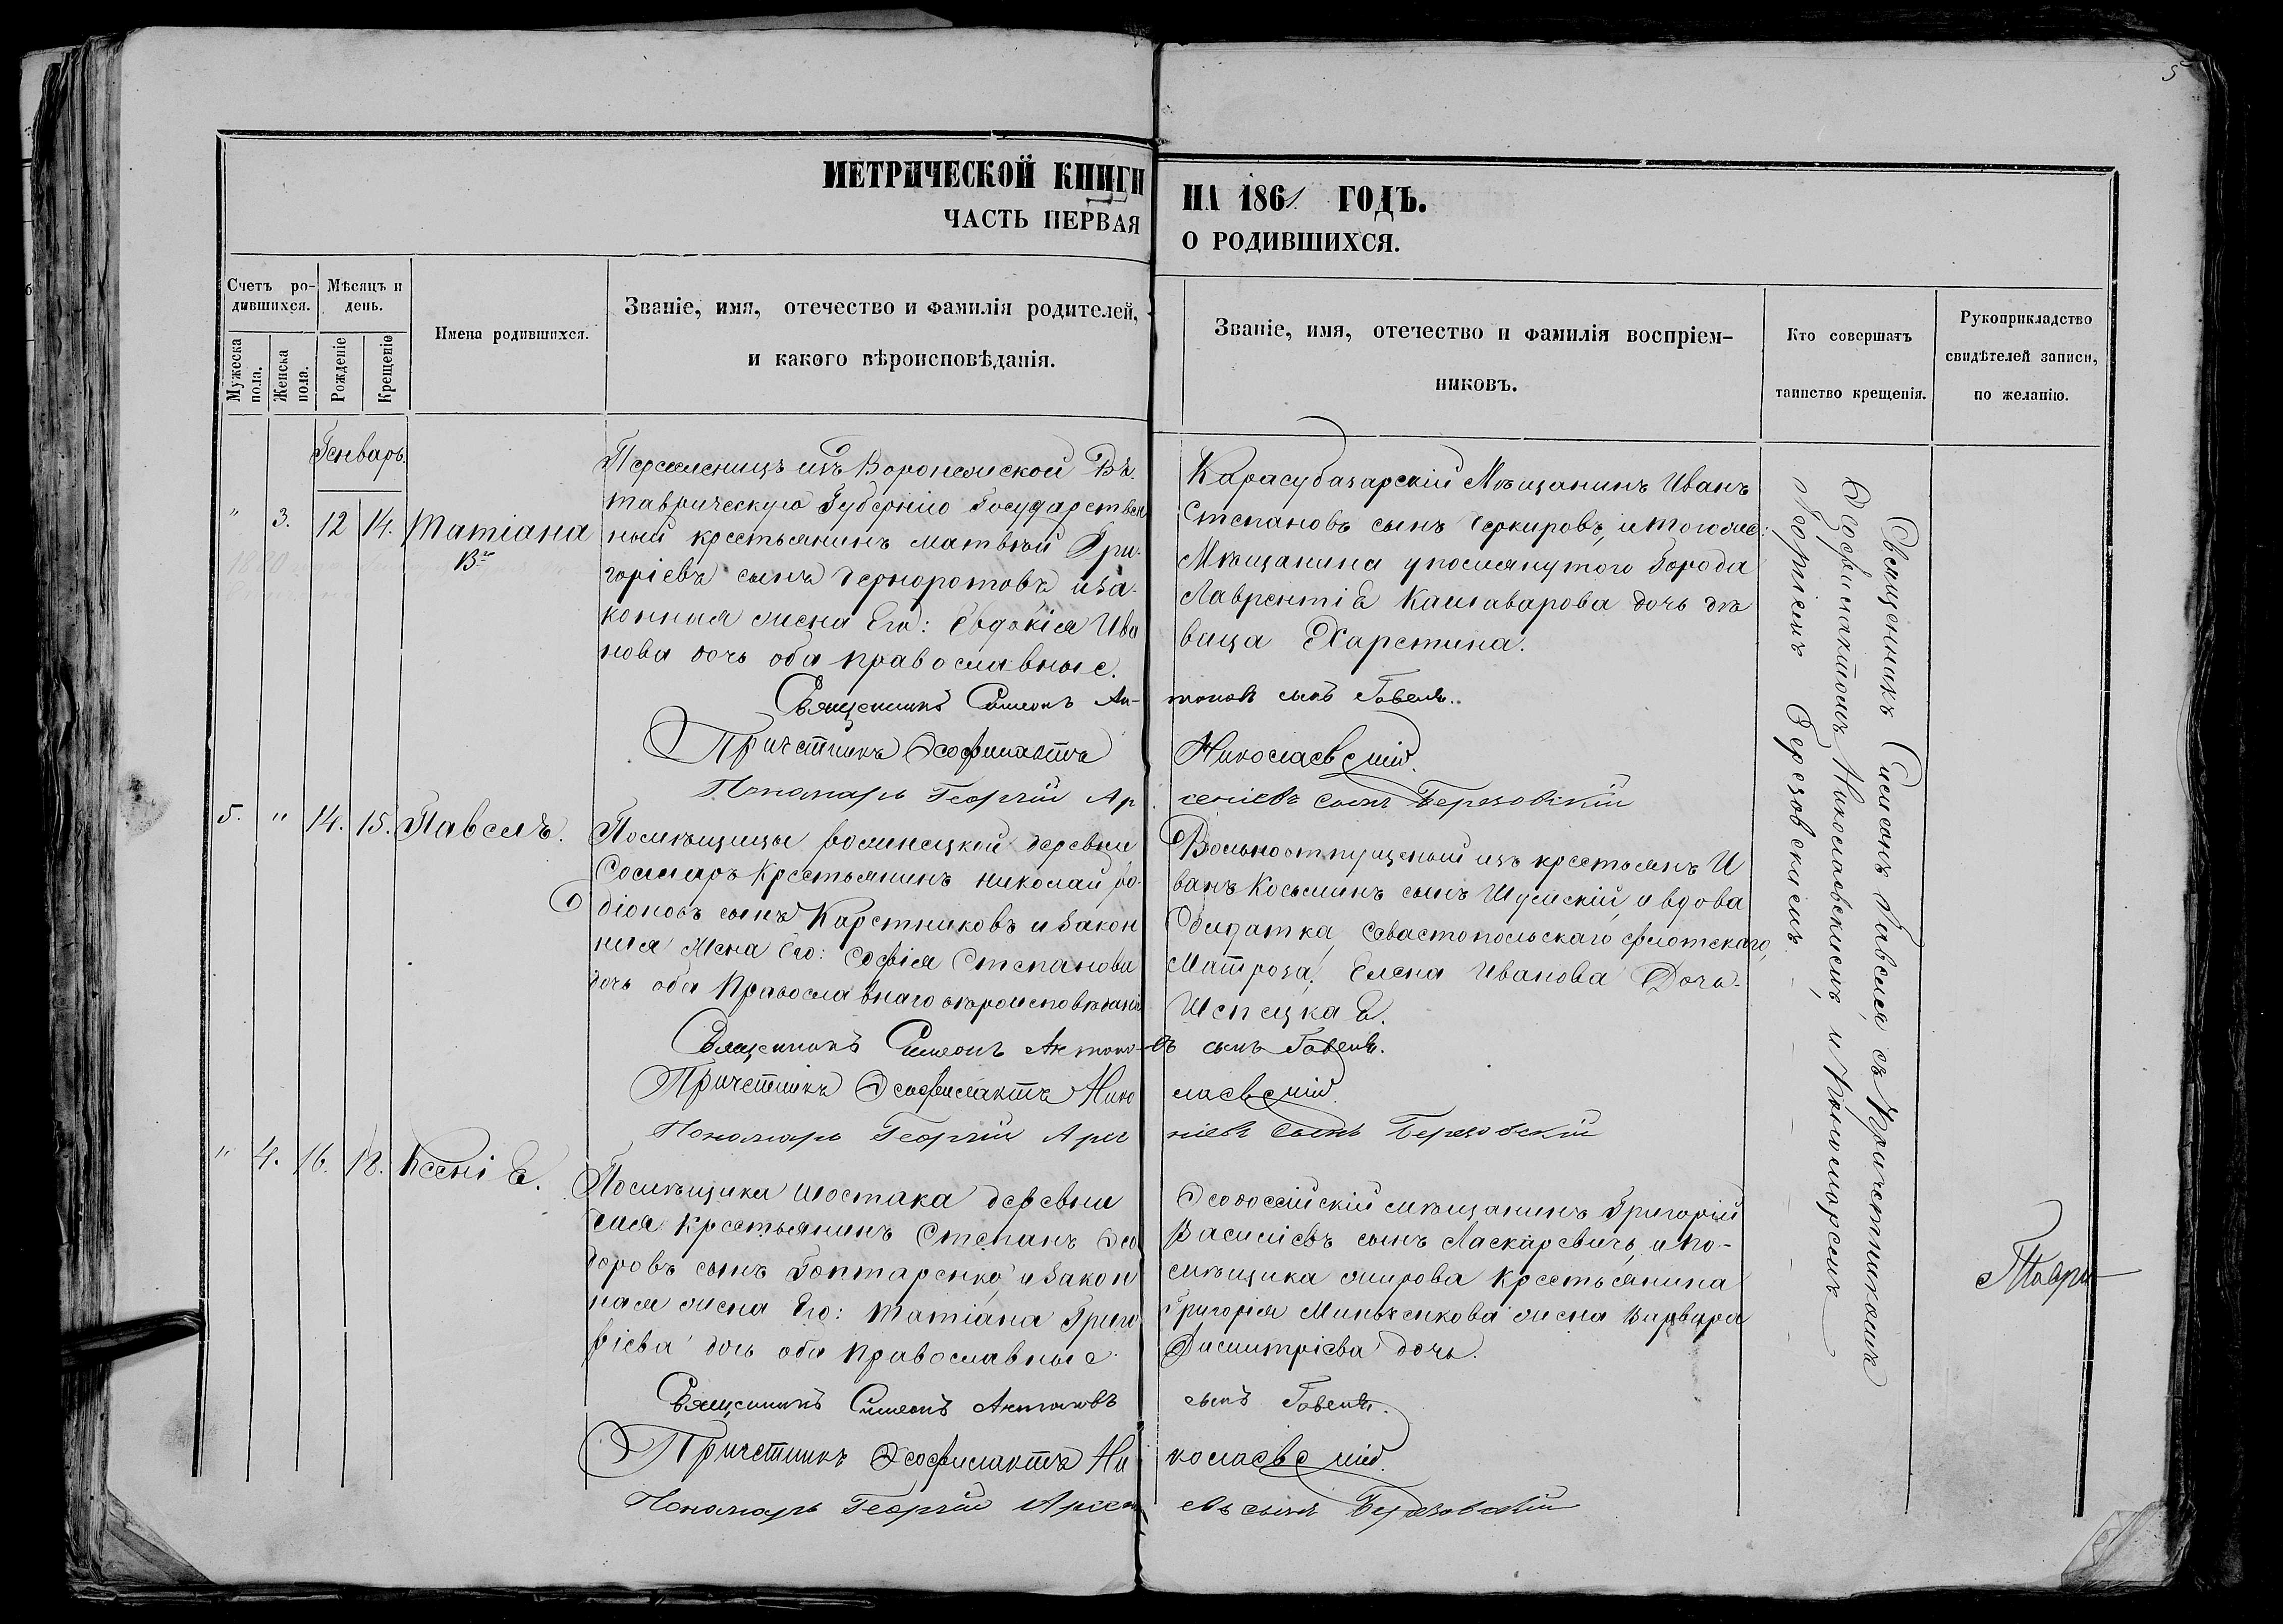 5
МЕТРИЧЕСКОЙ КНИГИ НА 1861 ГОДЪ.
ЧАСТЬ ПЕРВАЯ О РОДИВШИХСЯ.
Счетъ ро-
дившихся.
Мужеска
пола.
Женска
пола.
Мѣсяцъ и
день.
Рожденіе
Крещеніе
Имена родившихся.
Званіе, имя, отечество и фамилія родителей,
и какого вѣроисповѣданія.
Званіе, имя, отечество и фамилія воспріем-
никовъ.
Кто совершатъ
таинство крещенія.
Рукоприкладство
свидѣтелей записи,
по желанію.
Генварь.
" 3. 12 14. Татіана
Переселенецъ изъ Воронежской Въ
таврическую Губернію Государствен
ный крестьянинъ Матвѣй Гри-
горіевъ сынъ Черноротовъ и за-
конная жена Его: Евдокія Ива
нова дочь оба православные.
Карасубазарскій Мѣщанинъ Иванъ
Степановъ сынъ Черкировъ, и тогоже
Мѣщанина упомянутого Города
Лаврентія Кашаварова дочь дѣ
вица Харетина.
Священникъ Симеонъ Ан-тоновъ сынъ Гавеля.
Причетникъ Ѳеофилактъ Николаевскій.
Пономарь Георгій Арсеніевъ сынъ Березовскій
5. " 14. 15. Павелъ.
Помѣщицы деревни
Крестьянинъ Николай Ро-
діоновъ сынъ Каретниковъ и закон
ная Жена Его: Софія Степанова
дочь оба Православнаго вѣроисповѣданія
Вольноотпущеный изъ крестьянъ И
ванъ Косьминъ сынъ Шумскій, и вдова
Солдатка, Севастопольскаго флотскаго,
Матроза, Елена Иванова Дочь
Священникъ Симеонъ Антоно-въ сынъ Гавеля.
Причетникъ Ѳеофилактъ Николаевскій.
Пономарь Георгій Арсеніевъ сынъ Березовскій
" 4. 16. 18. Ксенія.
Помѣщика Шостака деревни
крестьянинъ Степанъ Ѳео
доровъ сынъ Гоптаренко, и закон
ная жена Его: Татіана Григо
ріева дочь оба Православные
Ѳеодосійскій мѣщанинъ Григорій
Василіевъ сынъ Ласкаревичь, и по-
мѣщика крестьянина
Григорія жена Варвара
Димитріева дочь.
Священникъ Симеонъ Антоновъ сынъ Гавеля.
Причетникъ Ѳеофилактъ Николаевскій.
Пономарь Георгій Арсен евъ сынъ Березовскій
Священникъ Симеонъ Гавеля, съ Причетникомъ
Ѳеофилактомъ Николаевскимъ, и Пономоремъ
Георгіемъ Березовскимъ.
Таври-